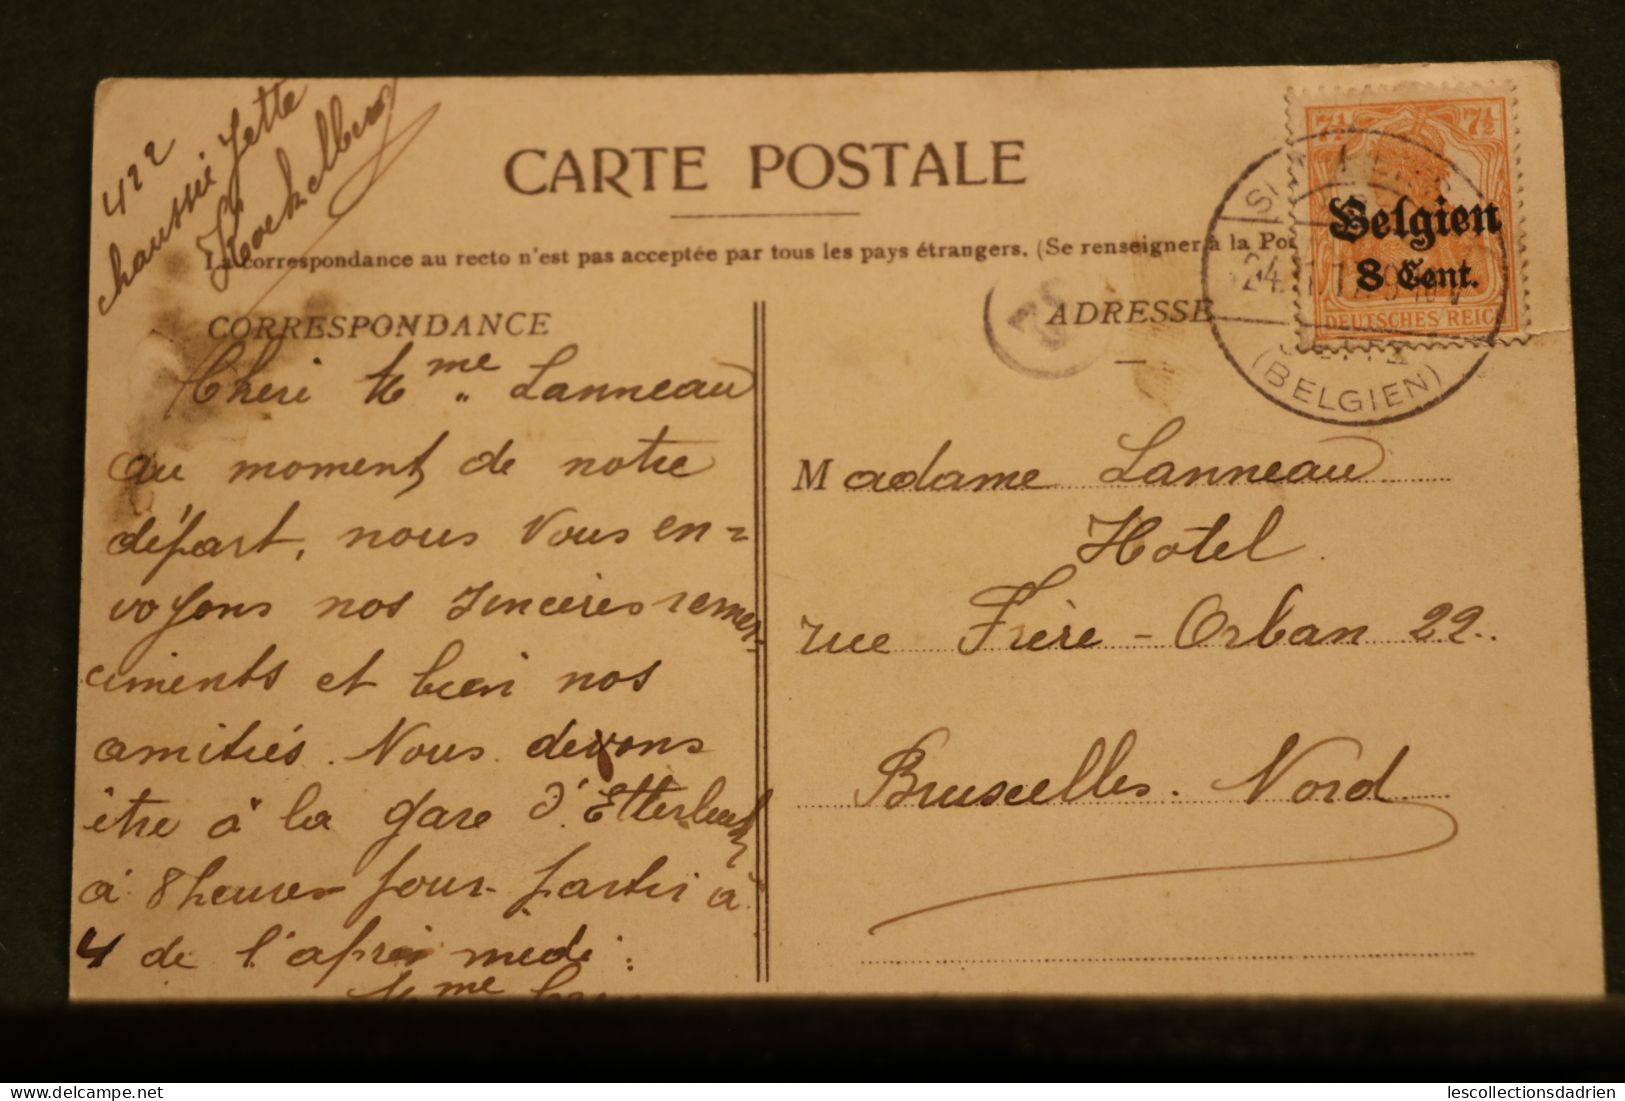 422
chaussée Jette
Koekelberg
CARTE POSTALE
La correspondance au recto n'est pas acceptée par tous les pays étrangers. (Se renseigner à la Pos
CORRESPONDANCE
ADRESSE
7½ 7½
Belgien
8 Cent.
DEUTSCHES REICH
(BELGIEN)
Cheri Mme Lanneau
au moment de notre
départ, nous vous en-
voyons nos sincères remer-
ciments et bien nos
amitiés. Nous devons
être à la gare d'Etterbeek
à 8 heures pour partir à
4 de l'après midi.
Mme
Madame Lanneau
Hotel
rue Frère-Orban 22.
Bruxelles. Nord
lescollectionsdadrien